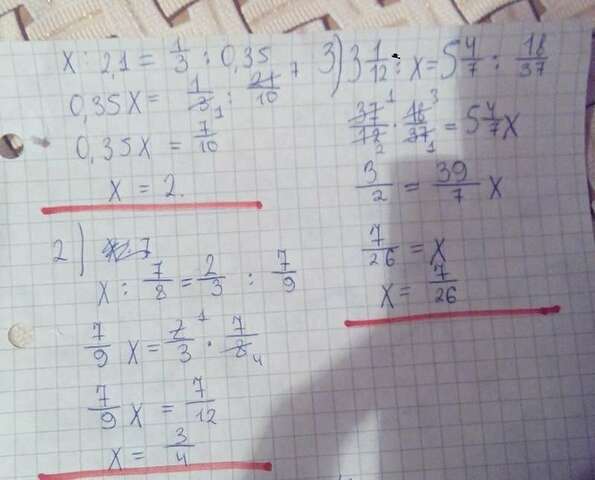 x : 2,1 = 1/3 : 0,35
0,35x = 1/3 1 : 21/10 7
0,35x = 7/10
x = 2.
2)
x : 7/8 = 2/3 : 7/9
7/9 x = 2/3 1 · 7/8 4
7/9 x = 7/12
x = 3/4
3) 3 1/12 : x = 5 4/7 : 18/37
37/12 1 2 · 18/37 3 1 = 5 4/7 x
3/2 = 39/7 x
7/26 = x
x = 7/26